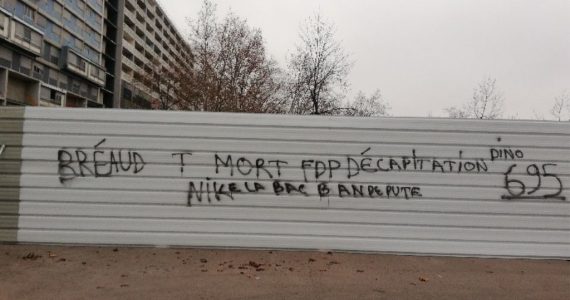 BRÉAUD T MORT FDP DÉCAPITATION DINO
695
NIKE LA BAC BANDEPUTE